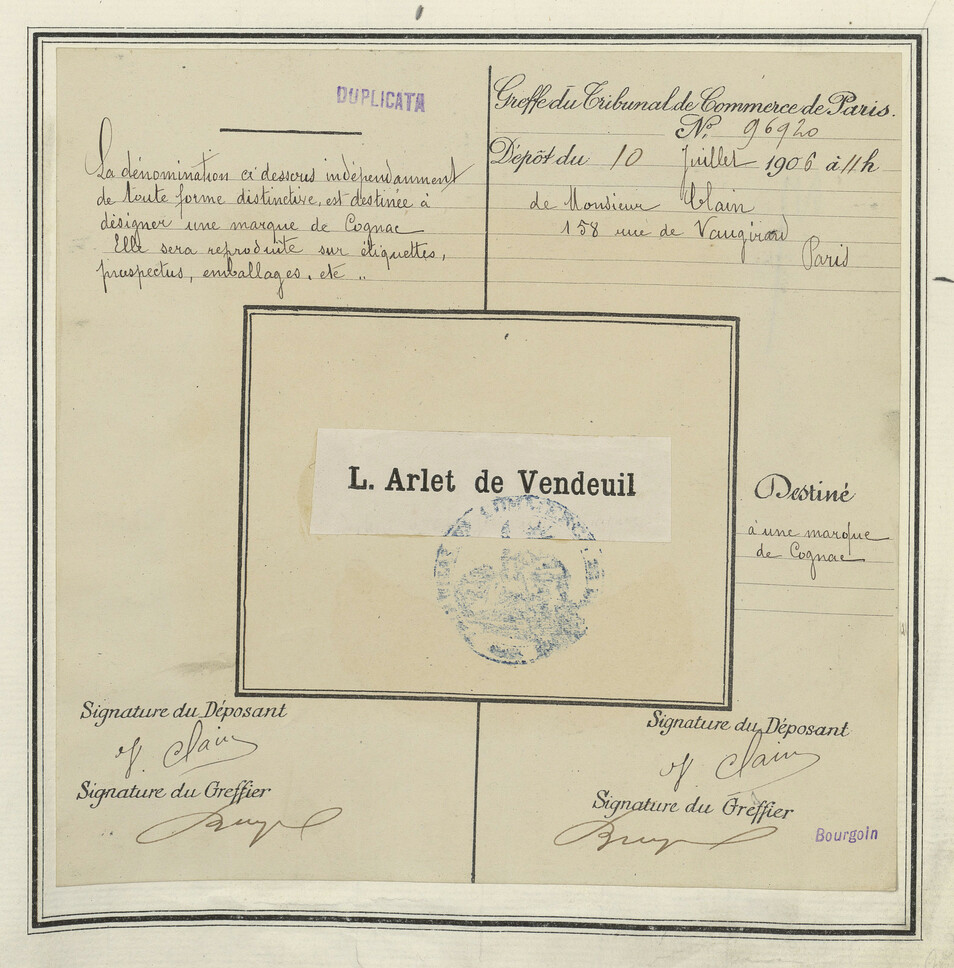 DUPLICATA
La dénomination ci dessous indépendamment
de toute forme distinctive, est destinée à
désigner une marque de Cognac
Elle sera reproduite sur étiquettes,
prospectus, emballages, etc ..
Greffe du Tribunal de Commerce de Paris.
No. 96920
Dépôt du 10 Juillet 1906 à 11 h
de Monsieur Clain
158 rue de Vaugirard
Paris
L. Arlet de Vendeuil
DE COMMERCE
Destiné
à une marque
de Cognac
Signature du Déposant
Clain
Signature du Greffier
Signature du Déposant
Clain
Signature du Greffier
Bourgoin